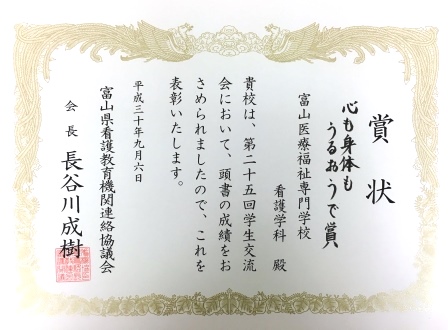 賞状
心も身体も
うるおうで賞
富山医療福祉専門学校
看護学科 殿
貴校は、第二十五回学生交流
会において、頭書の成績をお
さめられましたので、これを
表彰いたします。
平成三十年九月六日
富山県看護教育機関連絡協議会
会長 長谷川成樹